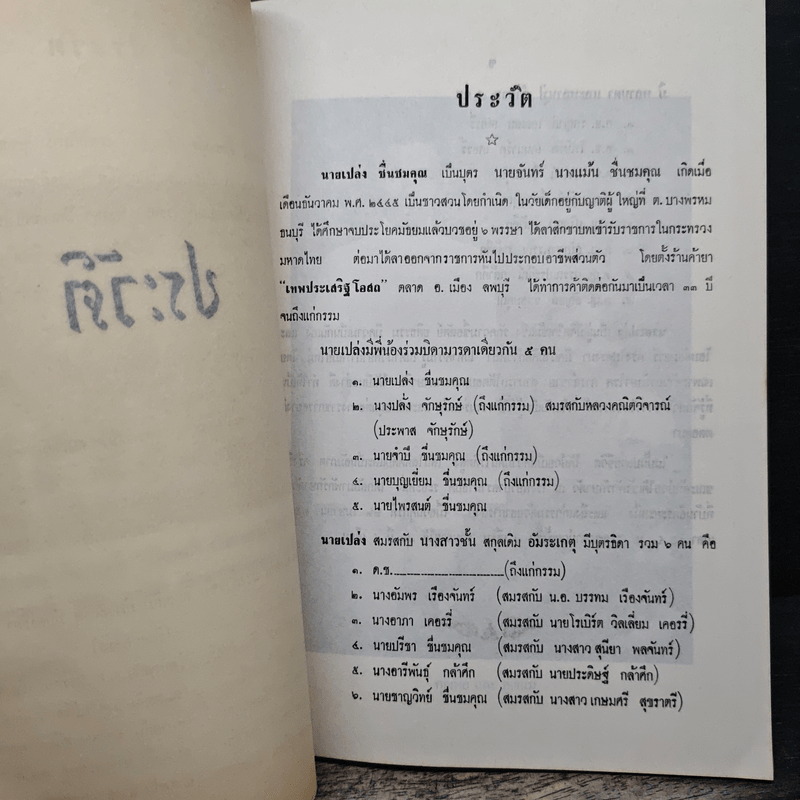 ประวัติ
ประวัติ
นายเปล่ง ชื่นชมคุณ เป็นบุตร นายจันทร์ นางแม้น ชื่นชมคุณ เกิดเมื่อ
เดือนธันวาคม พ.ศ. ๒๔๔๕ เป็นชาวสวนโดยกำเนิด ในวัยเด็กอยู่กับญาติผู้ใหญ่ที่ ต. บางพรหม
ธนบุรี ได้ศึกษาจบประโยคมัธยมแล้วบวชอยู่ ๖ พรรษา ได้ลาสิกขาบทเข้ารับราชการในกระทรวง
มหาดไทย ต่อมาได้ลาออกจากราชการหันไปประกอบอาชีพส่วนตัว โดยตั้งร้านค้ายา
“เทพประเสริฐโอสถ” ตลาด อ. เมือง ลพบุรี ได้ทำการค้าติดต่อกันมาเป็นเวลา ๓๓ ปี
จนถึงแก่กรรม
นายเปล่งมีพี่น้องร่วมบิดามารดาเดียวกัน ๕ คน
๑. นายเปล่ง ชื่นชมคุณ
๒. นางปลั่ง จักษุรักษ์ (ถึงแก่กรรม) สมรสกับหลวงคณิตวิจารณ์
(ประพาส จักษุรักษ์)
๓. นายจำปี ชื่นชมคุณ (ถึงแก่กรรม)
๔. นายบุญเยี่ยม ชื่นชมคุณ (ถึงแก่กรรม)
๕. นายไพรสนต์ ชื่นชมคุณ
นายเปล่ง สมรสกับ นางสาวชั้น สกุลเดิม อัมระเกตุ มีบุตรธิดา รวม ๖ คน คือ
๑. ด.ช...............................(ถึงแก่กรรม)
๒. นางอัมพร เรืองจันทร์ (สมรสกับ น.อ. บรรทม เรืองจันทร์)
๓. นางอาภา เคอรรี่ (สมรสกับ นายโรเบิร์ต วิลเลี่ยม เคอรรี่)
๔. นายปรีชา ชื่นชมคุณ (สมรสกับ นางสาว สุนียา พลจันทร์)
๕. นางอารีพันธุ์ กล้าศึก (สมรสกับ นายประดิษฐ์ กล้าศึก)
๖. นายชาญวิทย์ ชื่นชมคุณ (สมรสกับ นางสาว เกษมศรี สุขราตรี)